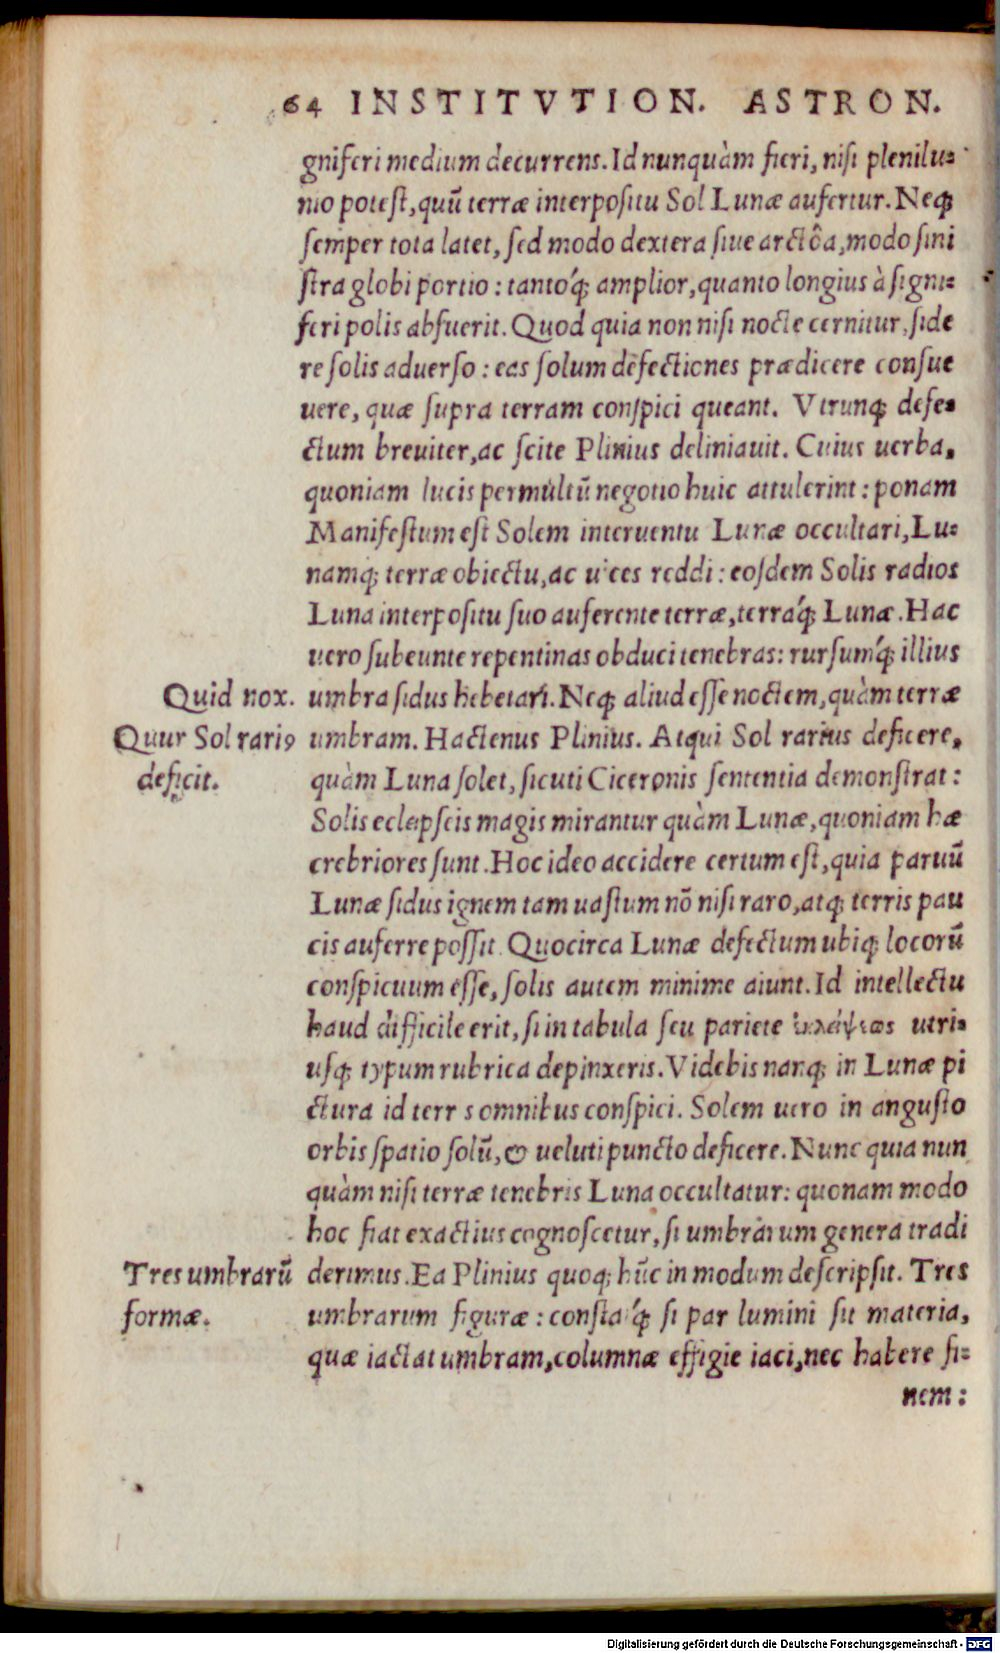 64 INSTITVTION. ASTRON.
gniferi medium decurrens. Id nunquàm fieri, nisi plenilu=
nio potest, quũ terræ interpositu Sol Lunæ aufertur. Neq;
semper tota latet, sed modo dextera siue arctôa, modo sini
stra globi portio: tantóq; amplior, quanto longius à signi=
feri polis absuerit. Quod quia non nisi nocte cernitur, side
re solis aduerso: eas solum defectiones prædicere consue
uere, quæ supra terram conspici queant. Vtrunq; defe=
ctum breuiter, ac scite Plinius deliniauit. Cuius uerba,
quoniam lucis permultũ negotio huic attulerint: ponam
Manifestum est Solem interuentu Lunæ occultari, Lu=
namq; terræ obiectu, ac uices reddi: eosdem Solis radios
Luna interpositu suo auferente terræ, terráq; Lunæ. Hac
uero subeunte repentinas obduci tenebras: rursumq́; illius
Quid nox. umbra sidus hebetari. Neq; aliud esse noctem, quàm terræ
Quur Sol rariꝰ umbram. Hactenus Plinius. Atqui Sol rarius deficere,
deficit. quàm Luna solet, sicuti Ciceronis sententia demonstrat:
Solis eclepseis magis mirantur quàm Lunæ, quoniam hæ
crebriores sunt. Hoc ideo accidere certum est, quia paruũ
Lunæ sidus ignem tam uastum nõ nisi raro, atq; terris pau
cis auferre possit. Quocirca Lunæ defectum ubiq; locorũ
conspicuum esse, solis autem minime aiunt. Id intellectu
haud difficile erit, si in tabula seu pariete utri=
usq; typum rubrica depinxeris. Videbis nanq; in Lunæ pi
ctura id terr s omnibus conspici. Solem uero in angusto
orbis spatio solũ, & ueluti puncto deficere. Nunc quia nun
quàm nisi terræ tenebris Luna occultatur: quonam modo
hoc fiat exactius cognoscetur, si umbrarum genera tradi
Tres umbrarũ derimus. Ea Plinius quoq; hũc in modum descripsit. Tres
formæ. umbrarum figuræ: constatq́; si par lumini sit materia,
quæ iactat umbram, columnæ effigie iaci, nec habere fi=
nem:
Digitalisierung gefördert durch die Deutsche Forschungsgemeinschaft - DFG